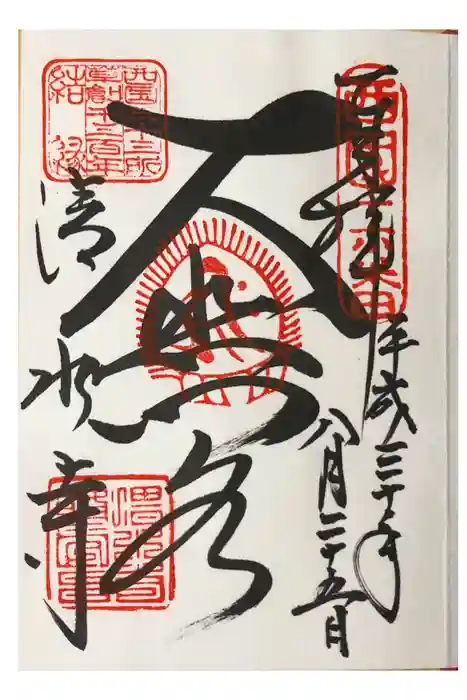 西国十六番
奉拝
平成三十年
八月二十五日
大悲閣
西国三十三所
草創千三百年
結縁
清水寺